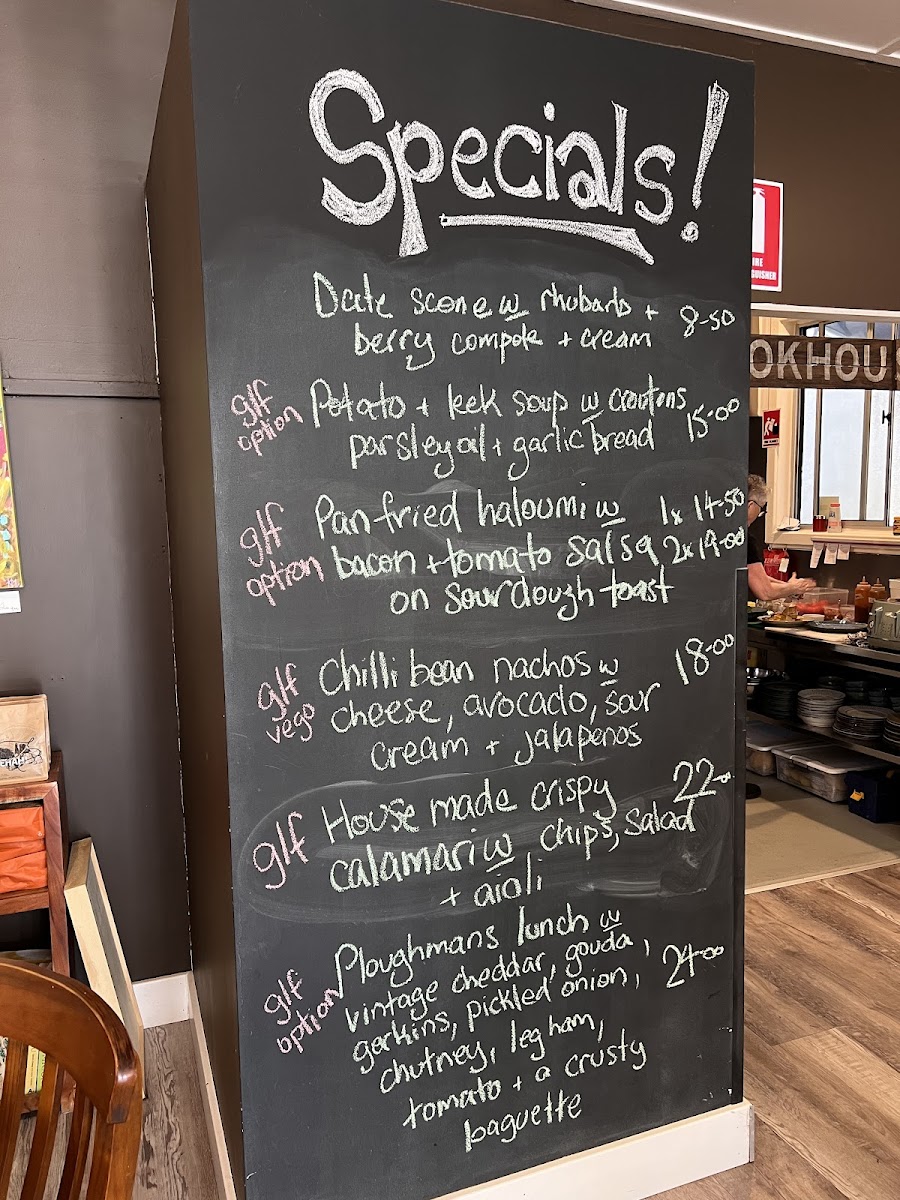 Specials!
Date scone w rhubarb +
berry compote + cream 8-50
glf option
Potato + leek soup w croutons
parsley oil + garlic bread 15-00
glf option
Pan-fried haloumi w 1x 14-50
bacon + tomato salsa 2x 19-00
on sourdough toast
glf vego
Chilli bean nachos w 18-00
cheese, avocado, sour
cream + jalapenos
glf
House made crispy 22-
calamari w chips, salad
+ aioli
glf option
Ploughmans lunch w
vintage cheddar, gouda,
gerkins, pickled onion, 24-00
chutney, leg ham,
tomato + a crusty
baguette
OKHOUS